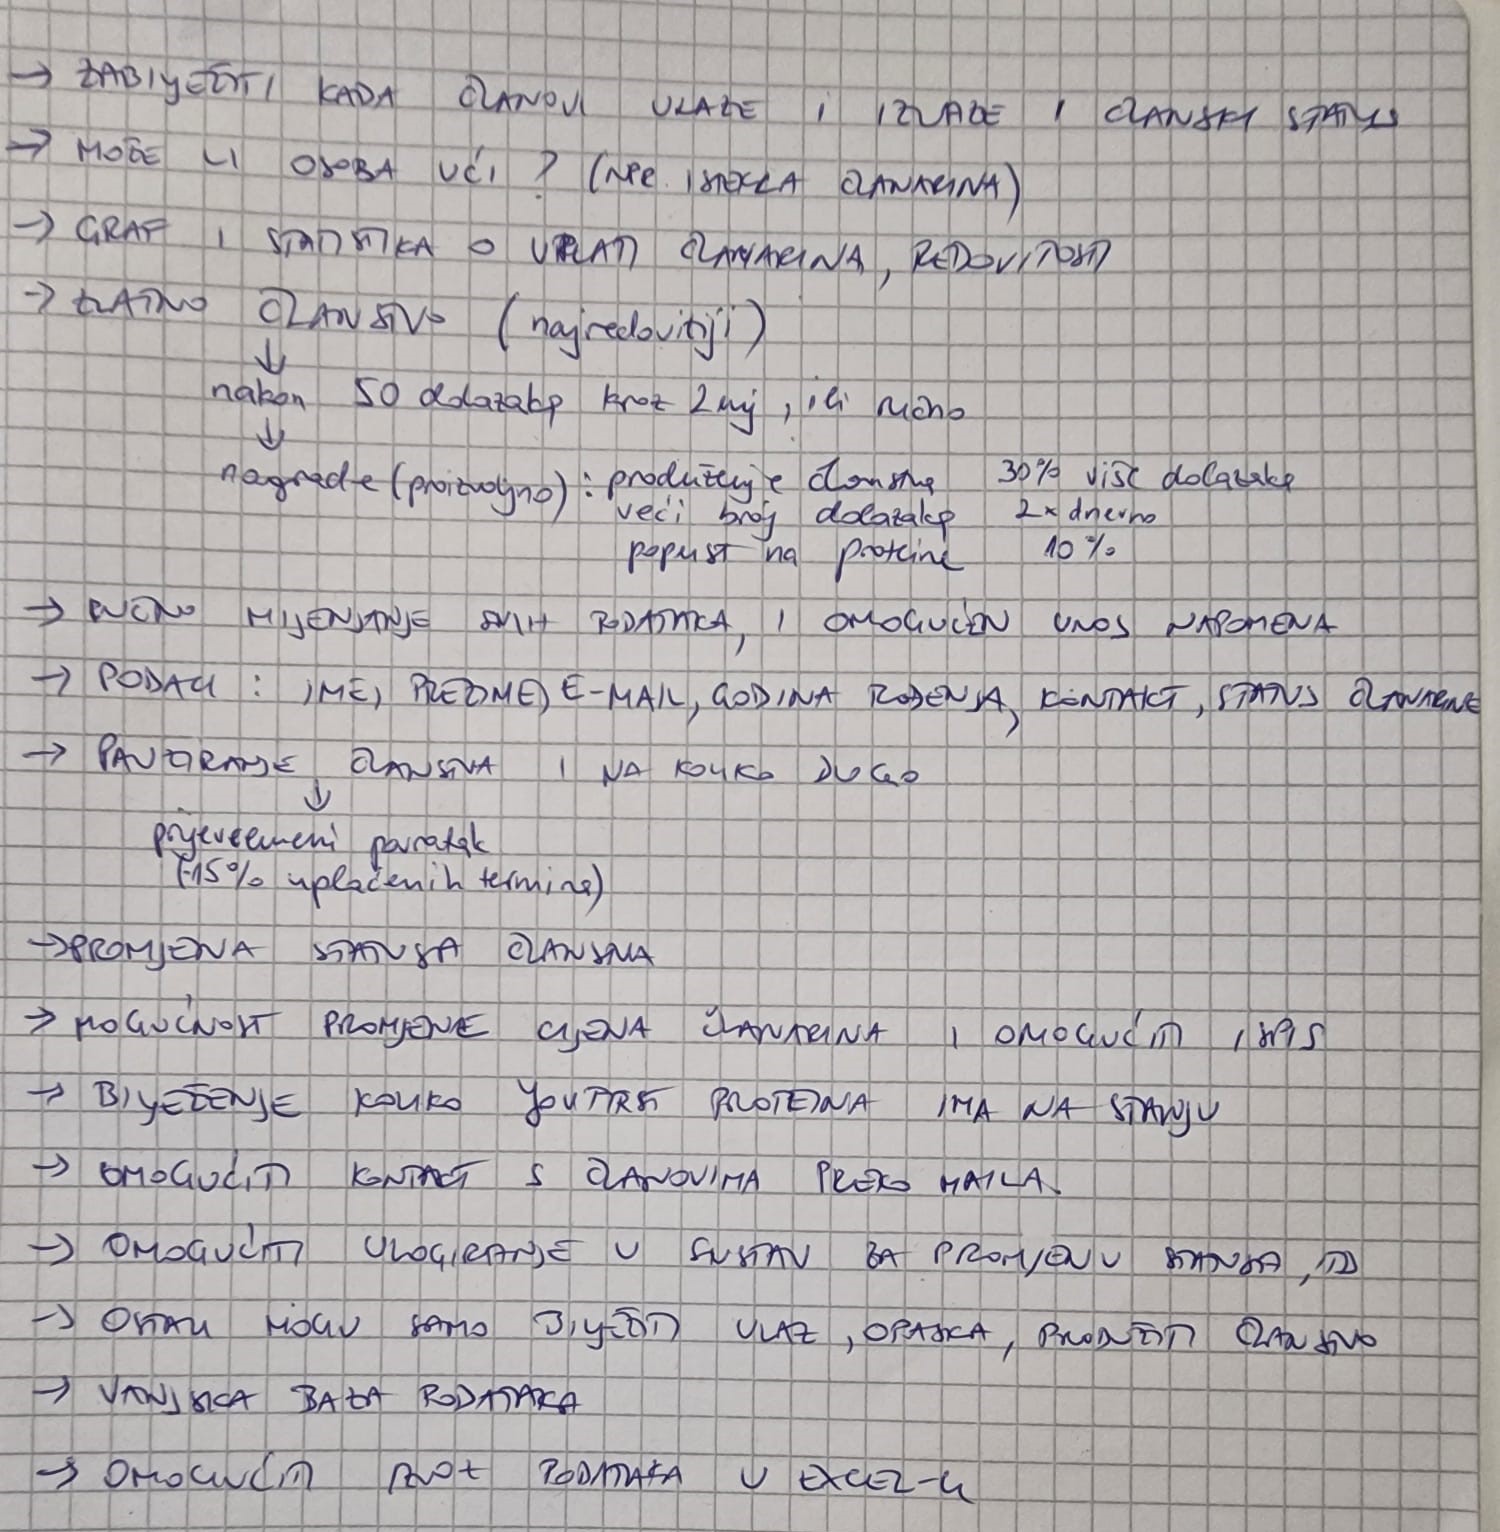 → ZABILJEŽITI KADA ČLANOVI ULAZE I IZLAZE I ČLANSKI STATUS
→ MOŽE LI OSOBA UĆI ? (NPR. ISTEKLA ČLANARINA)
→ GRAF I STATISTIKA O UPLATI ČLANARINA, REDOVITOSTI
→ ZLATNO ČLANSTVO (najredovitiji)
↓
nakon 50 dolazaka kroz 2 mj, ili ručno
↓
nagrade (proizvoljno) : produženje članstva 30% više dolazaka
veći broj dolazaka 2x dnevno
popust na proteine 10%
→ RUČNO MIJENJANJE SVIH PODATAKA, I OMOGUĆEN UNOS NAPOMENA
→ PODACI : IME, PREZIME, E-MAIL, GODINA ROĐENJA, KONTAKT, STATUS ČLANARINE
→ PAUZIRANJE ČLANSTVA I NA KOLIKO DUGO
↓
prijevremeni povratak
(-15% uplaćenih termina)
→ PROMJENA STATUSA ČLANSTVA
→ MOGUĆNOST PROMJENE CIJENA ČLANARINA I OMOGUĆITI ISPIS
→ BILJEŽENJE KOLIKO PROTEINA IMA NA STANJU
→ OMOGUĆITI KONTAKT S ČLANOVIMA PREKO MAILA.
→ OMOGUĆITI ULOGIRANJE U SUSTAV ZA PROMJENU STATUSA, ITD
→ OSTALI MOGU SAMO BILJEŽITI ULAZ, OPASKA, PRODUŽITI ČLANSTVO
→ VANJSKA BAZA PODATAKA
→ OMOGUĆITI PODATAKA U EXCEL-u